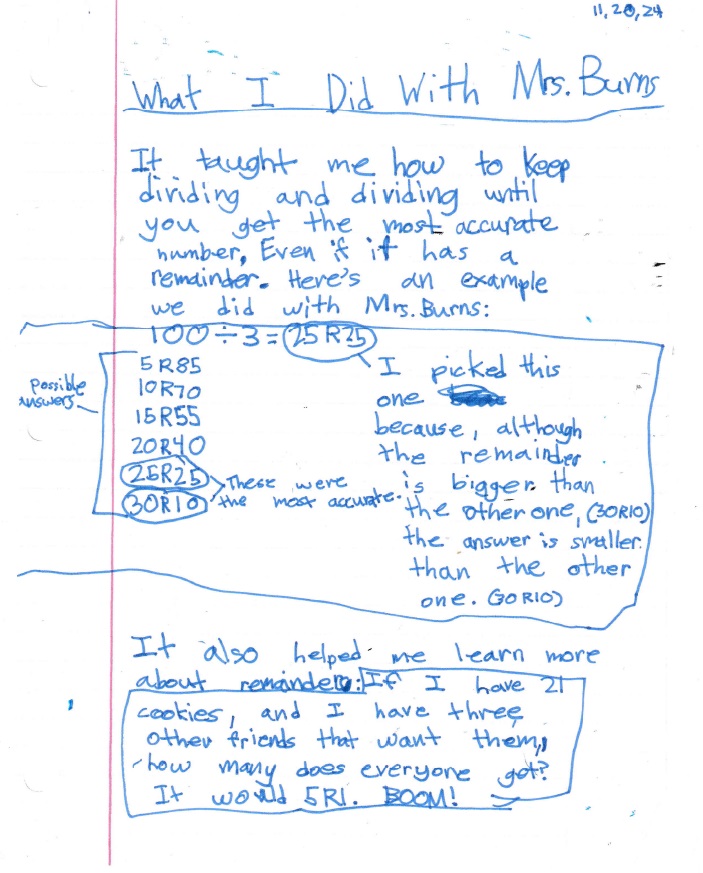 11, 20, 24
What I Did With Mrs. Burns
It taught me how to keep
dividing and dividing until
you get the most accurate
number, Even if it has a
remainder. Here's an example
we did with Mrs. Burns:
100 ÷ 3 = 25 R25
Possible
answers
5 R85
10 R70
15 R55
20 R40
25 R25
30 R10
These were
the most accurate.
I picked this
one
because, although
the remainder
is bigger than
the other one, (30R10)
the answer is smaller
than the other
one. (30 R10)
It also helped me learn more
about remainders: If I have 21
cookies, and I have three
other friends that want them,
how many does everyone get?
It would 5R1. BOOM!